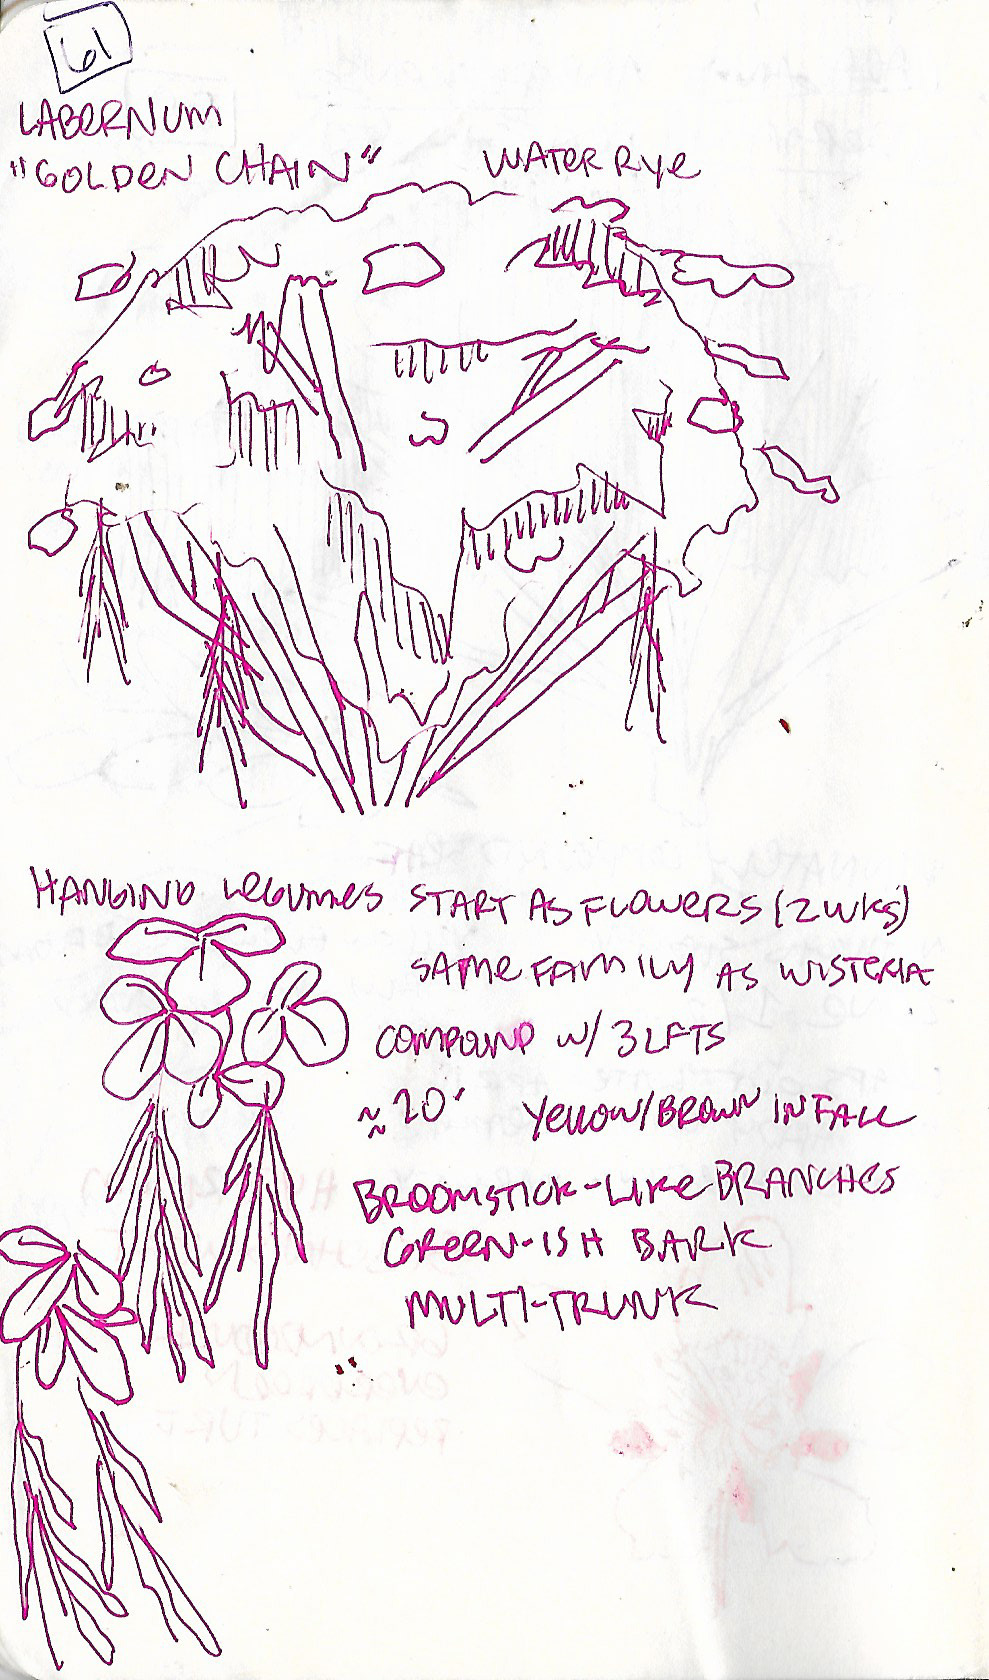 61
LABERNUM
"GOLDEN CHAIN"
WATERRYE
HANGING LEGUMES START AS FLOWERS (2WKS)
SAME FAMILY AS WISTERIA
COMPOUND W/ 3 LFTS
≈20' YELLOW/BROWN IN FALL
BROOMSTICK-LIKE BRANCHES
GREEN-ISH BARK
MULTI-TRUNK